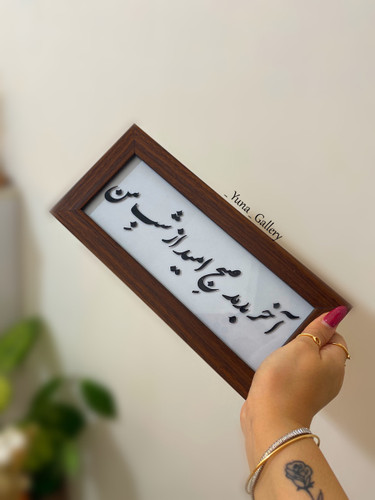 آخر بدمد صبح امید از شب من
_Yuna_Gallery